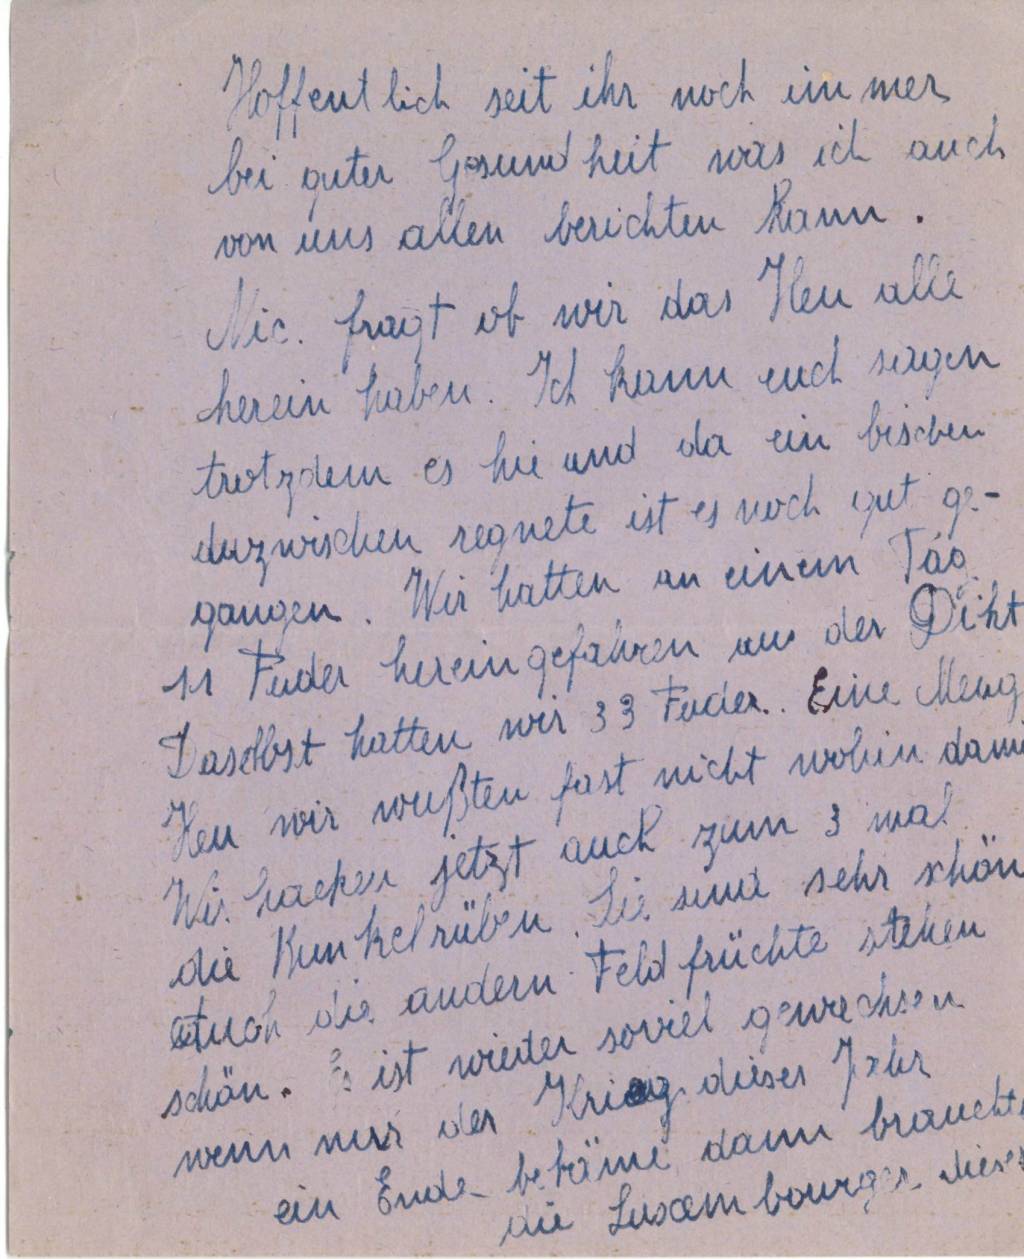 Hoffentlich seit ihr noch immer
bei guter Gesundheit was ich auch
von uns allen berichten kann.
Nic. fragt ob wir das Heu alle
herein haben. Ich kann euch sagen
trotzdem es hie und da ein bischen
dazwischen regnete ist es noch gut ge-
gangen. Wir hatten an einem Tag
11 Fuder hereingefahren aus der Dikt
Daselbst hatten wir 33 Fuder. Eine Meng
Heu wir wußten fast nicht wohin dami
Wir hacken jetzt auch zum 3 mal
die Runkelrüben. Sie sind sehr schön
Auch die andern Feldfrüchte stehen
schön. Es ist wieder soviel gewachsen
wenn nur der Krieg dieser Jahr
ein Ende bekäme dann brauchte
die Luxembourger dieses